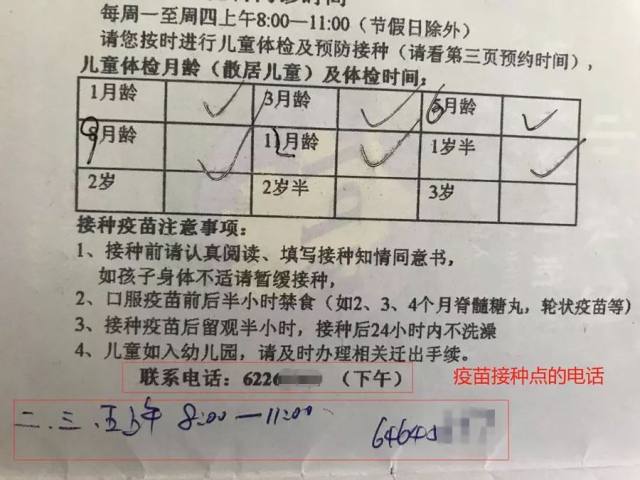 每周一至周四上午8:00—11:00（节假日除外）
请您按时进行儿童体检及预防接种（请看第三页预约时间），
儿童体检月龄（散居儿童）及体检时间：
1月龄 3月龄 6月龄
9月龄 12月龄 1岁半
2岁 2岁半 3岁
接种疫苗注意事项：
1、接种前请认真阅读、填写接种知情同意书，
如孩子身体不适请暂缓接种，
2、口服疫苗前后半小时禁食（如2、3、4个月脊髓糖丸，轮状疫苗等）
3、接种疫苗后留观半小时，接种后24小时内不洗澡
4、儿童如入幼儿园，请及时办理相关迁出手续。
联系电话：6226（下午） 疫苗接种点的电话
二.三.五上午 8:00—11:00 6464